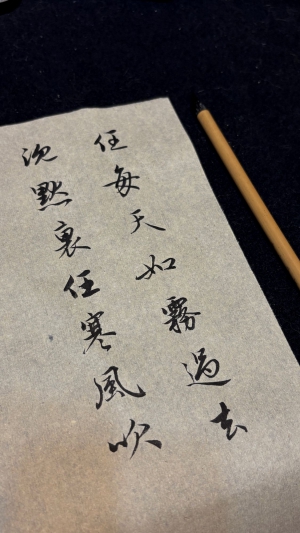 任每天如霧過去
沉默裏任寒風吹